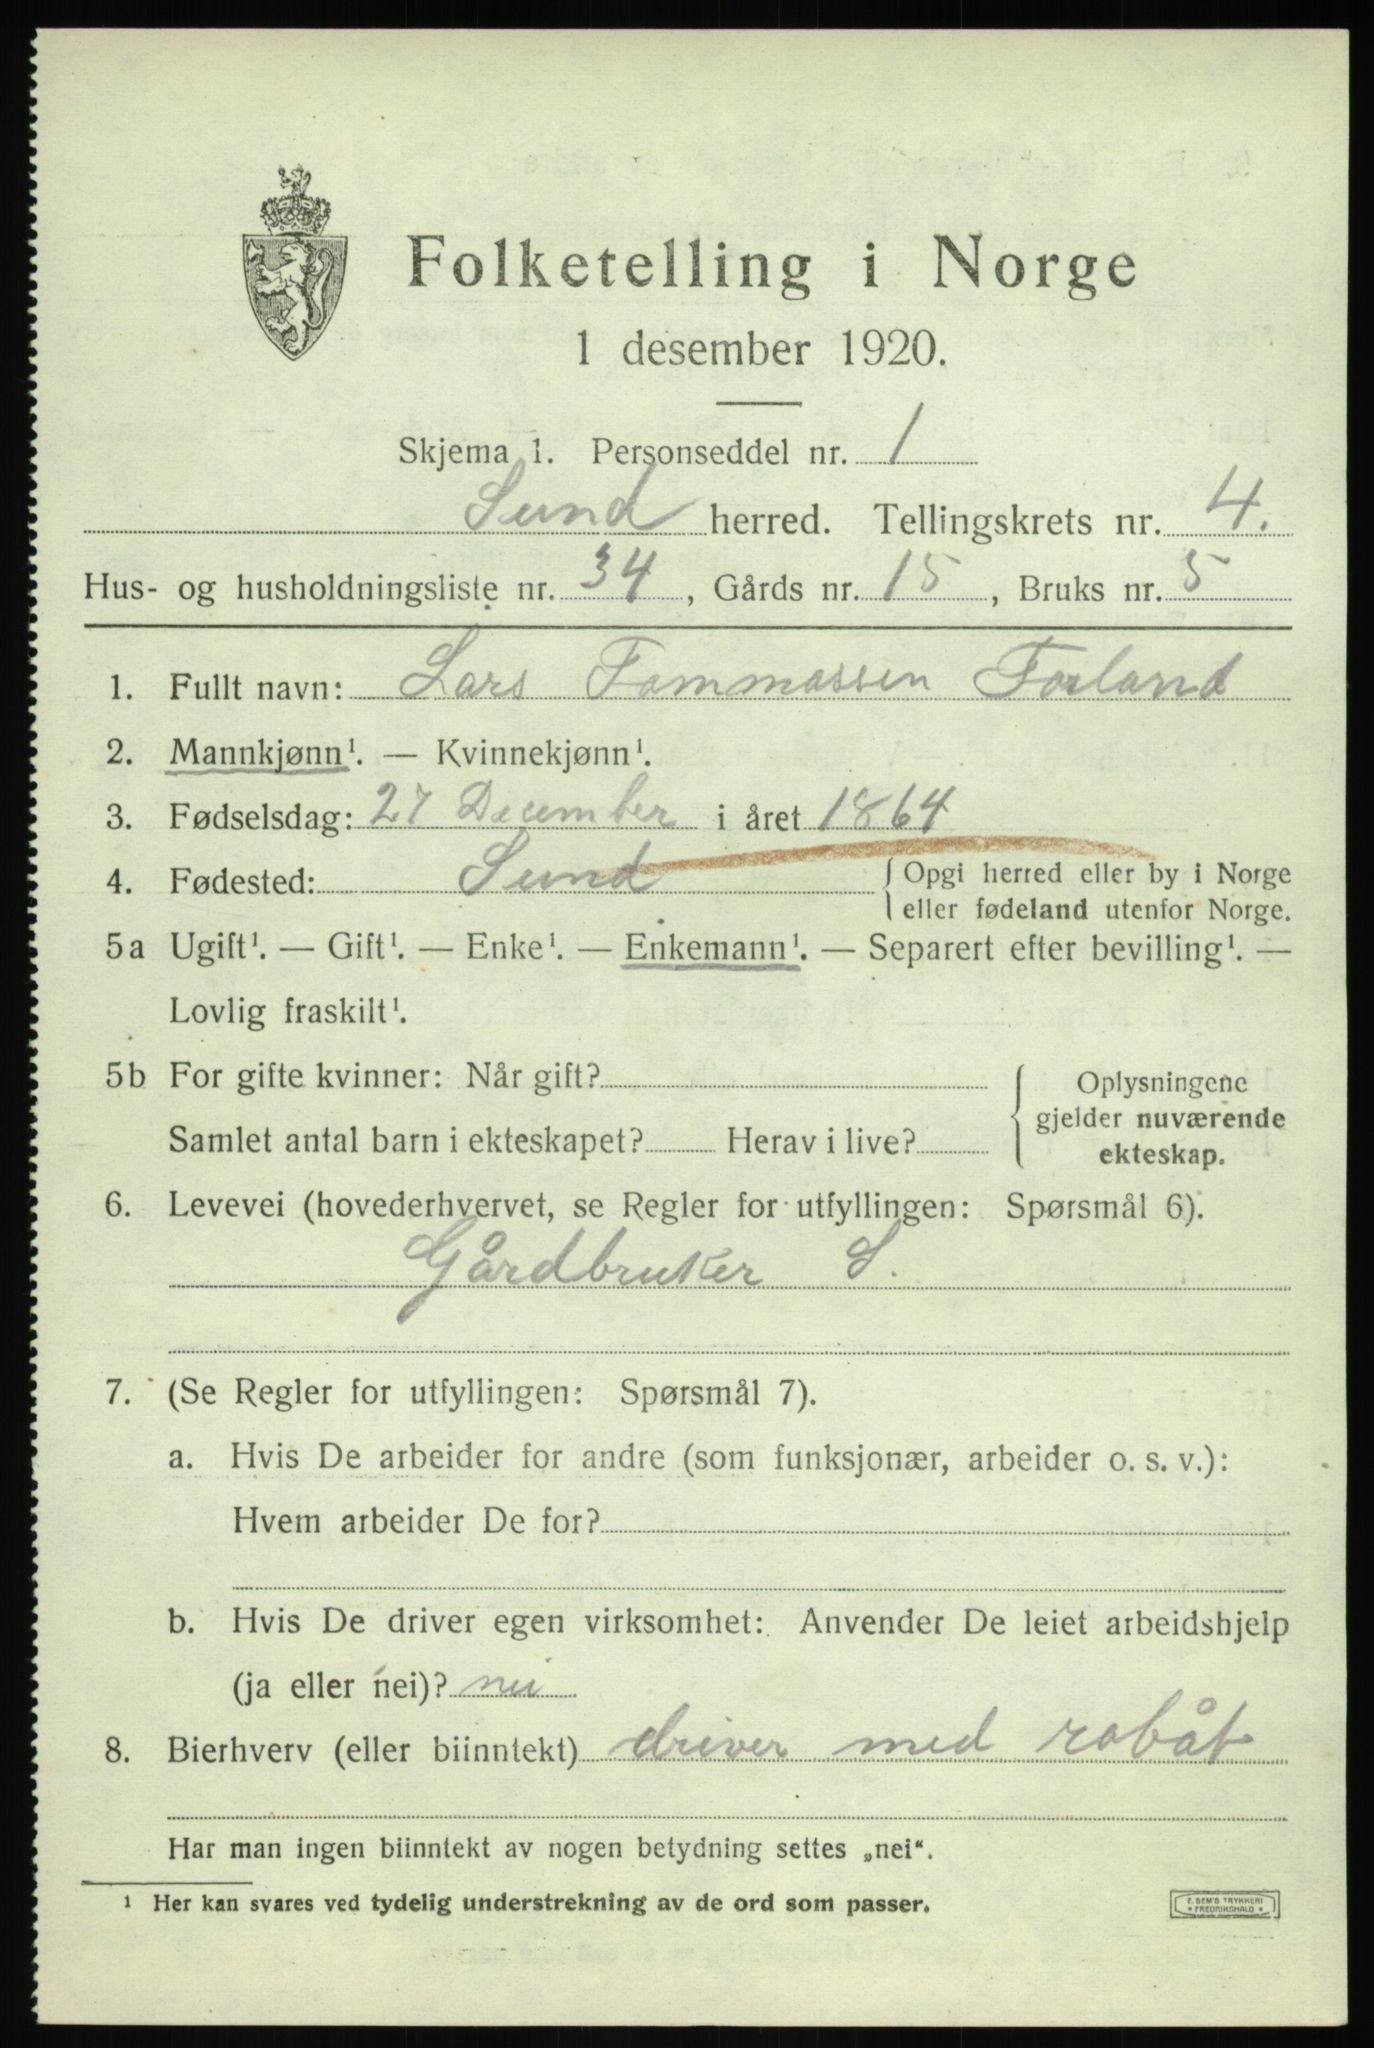 Folketelling i Norge
1 desember 1920.
Skjema 1. Personseddel nr. 1
Sund herred. Tellingskrets nr. 4.
Hus- og husholdningsliste nr. 34, Gårds nr. 15, Bruks nr. 5
1. Fullt navn: Lars Tommassen Forland
2. Mannkjønn¹. — Kvinnekjønn¹.
3. Fødselsdag: 27 December i året 1864
4. Fødested: Sund { Opgi herred eller by i Norge
eller fødeland utenfor Norge.
5a Ugift¹. — Gift¹. — Enke¹. — Enkemann¹. — Separert efter bevilling¹. —
Lovlig fraskilt¹.
5b For gifte kvinner: Når gift?
Samlet antal barn i ekteskapet? Herav i live?
{ Oplysningene
gjelder nuværende
ekteskap.
6. Levevei (hovederhvervet, se Regler for utfyllingen: Spørsmål 6).
Gårdbruker S.
7. (Se Regler for utfyllingen: Spørsmål 7).
a. Hvis De arbeider for andre (som funksjonær, arbeider o. s. v.):
Hvem arbeider De for?
b. Hvis De driver egen virksomhet: Anvender De leiet arbeidshjelp
(ja eller nei)? nei
8. Bierhverv (eller biinntekt) driver med robåt
Har man ingen biinntekt av nogen betydning settes „nei“.
¹ Her kan svares ved tydelig understrekning av de ord som passer.
E. SEM'S TRYKKERI
FREDRIKSHALD